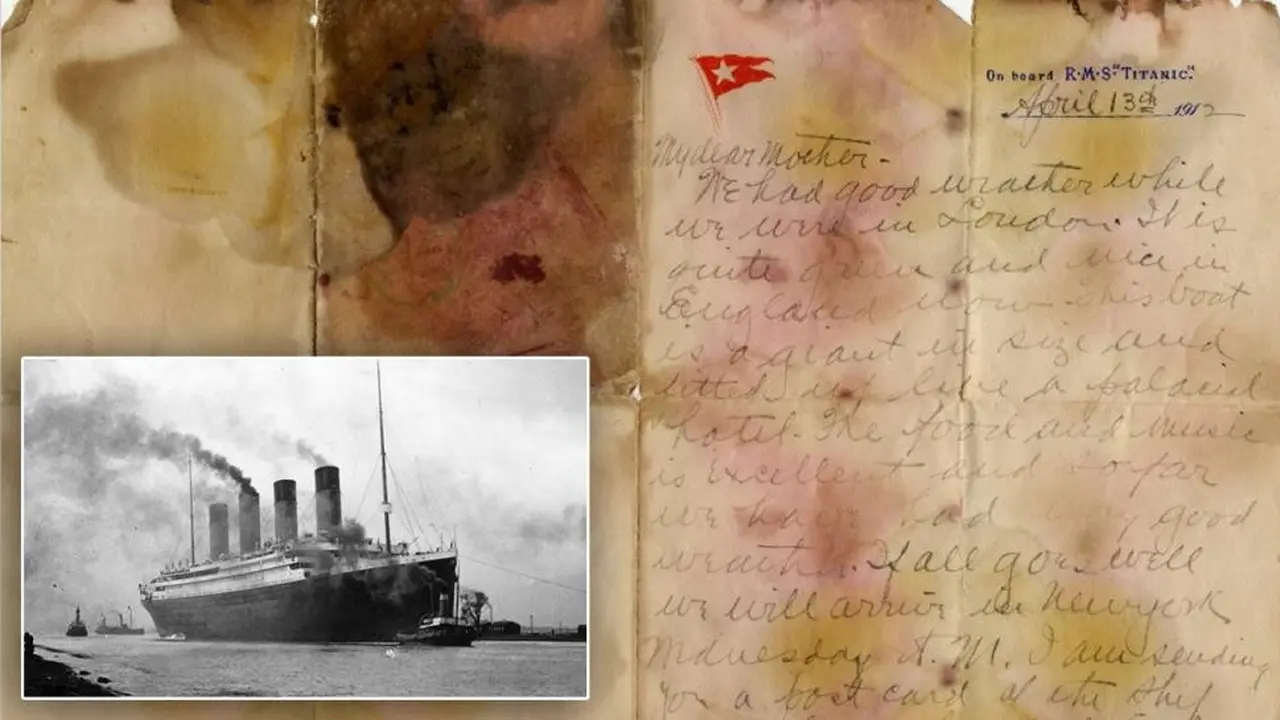 On board R.M.S "TITANIC."
April 13th 1912
My dear Mother -
We had good weather while
we were in London. It is
quite green and nice in
England now. This boat
is a giant in size and
fitted up like a palacial
hotel. The food and music
is excellent and so far
we have had very good
weather. If all goes well
we will arrive in New York
Wednesday A. M. I am sending
you a post card of the ship